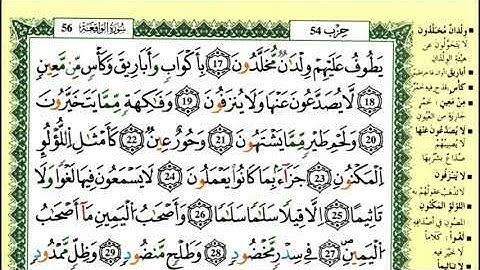 سُورَةُ الوَاقِعَة 56
حِزْب 54
يَطُوفُ عَلَيْهِمْ وِلْدَٰنٌ مُّخَلَّدُونَ 17 بِأَكْوَابٍ وَأَبَارِيقَ وَكَأْسٍ مِّن مَّعِينٍ
18 لَّا يُصَدَّعُونَ عَنْهَا وَلَا يُنزِفُونَ 19 وَفَٰكِهَةٍ مِّمَّا يَتَخَيَّرُونَ
20 وَلَحْمِ طَيْرٍ مِّمَّا يَشْتَهُونَ 21 وَحُورٌ عِينٌ 22 كَأَمْثَٰلِ اللُّؤْلُوِٕ
الْمَكْنُونِ 23 جَزَآءًۢ بِمَا كَانُوا۟ يَعْمَلُونَ 24 لَا يَسْمَعُونَ فِيهَا لَغْوًا وَلَا
تَأْثِيمًا 25 إِلَّا قِيلًا سَلَٰمًا سَلَٰمًا 26 وَأَصْحَٰبُ الْيَمِينِ مَآ أَصْحَٰبُ
الْيَمِينِ 27 فِي سِدْرٍ مَّخْضُودٍ 28 وَطَلْحٍ مَّنضُودٍ 29 وَظِلٍّ مَّمْدُودٍ
وِلْدَانٌ مُخَلَّدُون
لَا يَتَحَوَّلُونَ عَنْ
هَيْئَةِ الْوِلْدَانِ
أَبَارِيقَ
كَأْسٍ
مِنْ مَعِينٍ
جَارِيَةٍ مِنَ الْعُيُونِ
لَا يُصَدَّعُونَ عَنْهَا
لَا يُنْزِفُونَ
اللُّؤْلُؤِ الْمَكْنُونِ
لَغْوًا: كَلَامًا
لَا خَيْرَ فِيهِ
لَا تَأْثِيمًا